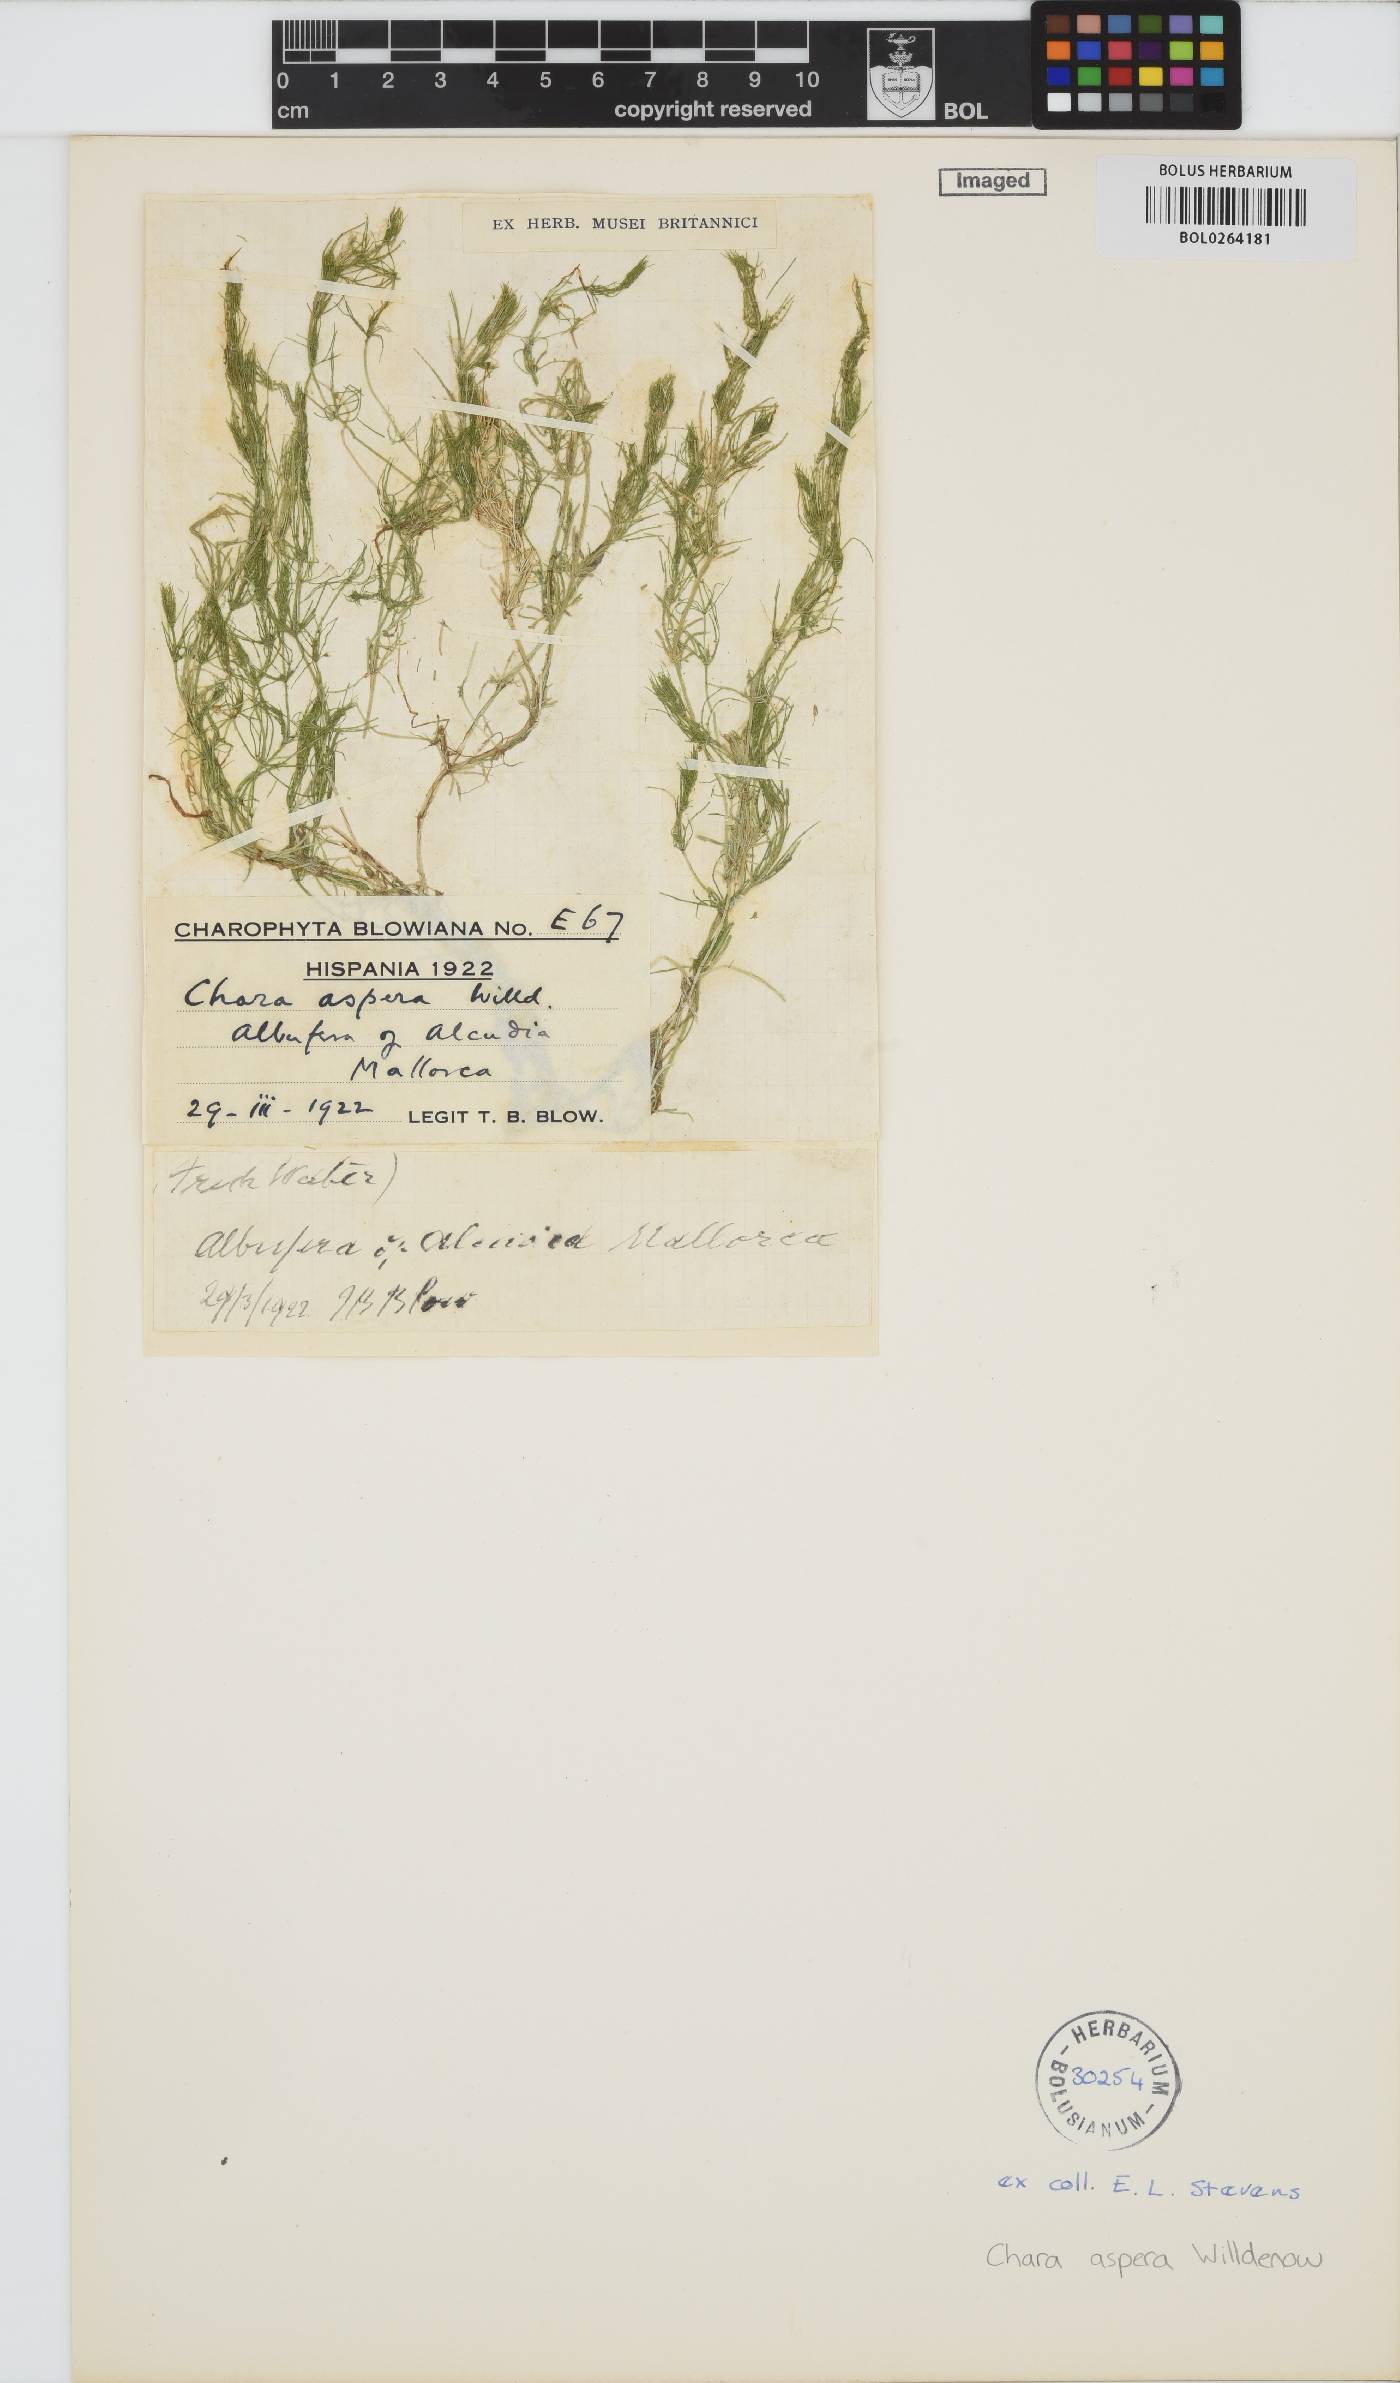 0 1 2 3 4 5 6 7 8 9 10
cm copyright reserved BOL
Imaged
BOLUS HERBARIUM
BOL0264181
EX HERB. MUSEI BRITANNICI
CHAROPHYTA BLOWIANA No. E 67
HISPANIA 1922
Chara aspera Willd.
Albufera of Alcudia
Mallorca
29-iii-1922 LEGIT T. B. BLOW.
Fresh Water)
Albufera Mallorca
29/3/1922 Blow
HERBARIUM
30254
BOLUSIANUM
ex coll. E. L. Stevens
Chara aspera Willdenow